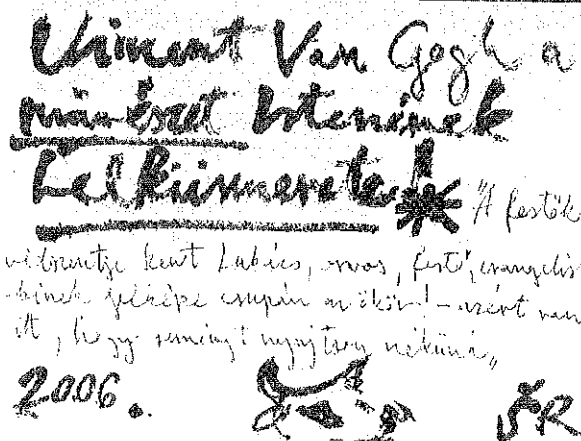 Vincent Van Gogh a
művészet Istenének
Lelkiismerete!
"A festők
védszentje Szent Lukács, orvos, festő, evangelis
jelképe csupán az ökör! – azért van
itt, hogy reményt nyújtson nékünk„
2006.
ŠR